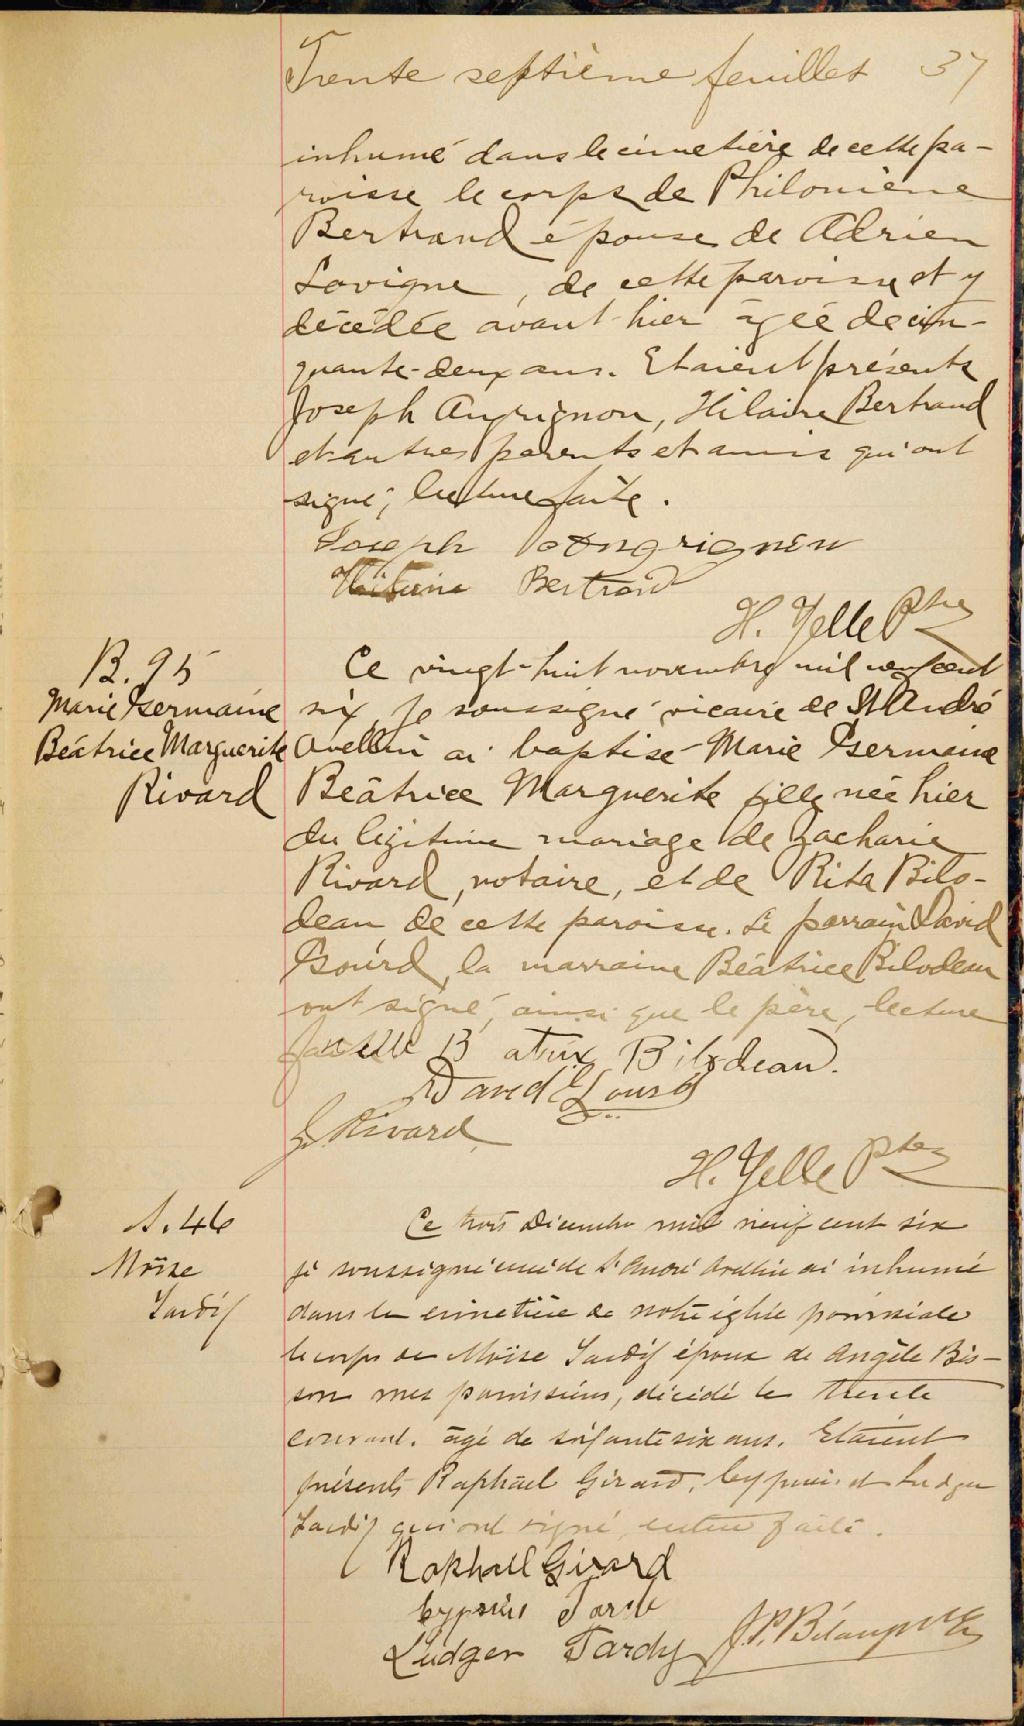 Trente septième feuillet 37
inhumé dans le cimetière de cette pa-
roisse le corps de Philomène
Bertrand épouse de Adrien
Lavigne, de cette paroisse et y
décédée avant-hier âgée de cin-
quante-deux ans. Etaient présents
Joseph Augrignon, Hilaire Bertrand
et autres parents et amis qui ont
signé, lecture faite.
Joseph
Bertrand
H. Yelle Ptre
B. 95
Marie Germaine
Béatrice Marguerite
Rivard
Ce vingt-huit novembre mil neuf cent
six, je soussigné vicaire de St André
Avellin ai baptisé Marie Germaine
Béatrice Marguerite fille née hier
du légitime mariage de Zacharie
Rivard, notaire, et de Rita Bilo-
deau, de cette paroisse. Le parrain David
Gourd, la marraine Béatrice Bilodeau
ont signé, ainsi que le père, lecture
Bilodeau.
David Gourd
Z. Rivard
H. Yelle Ptre
S. 46
Moïse
Tardif
Ce trois Décembre mil neuf cent six
je soussigné curé de St André Avellin ai inhumé
dans le cimetière de notre église paroissiale
le corps de Moïse Tardif époux de Angèle Bis-
son mes paroissiens, décédé le trente
courant. âgé de soixante six ans. Etaient
présents Raphaël Girard, et Ludger
Tardif qui ont signé, lecture faite.
Raphaël Girard
Ludger Tardy
J. P. Bélanger